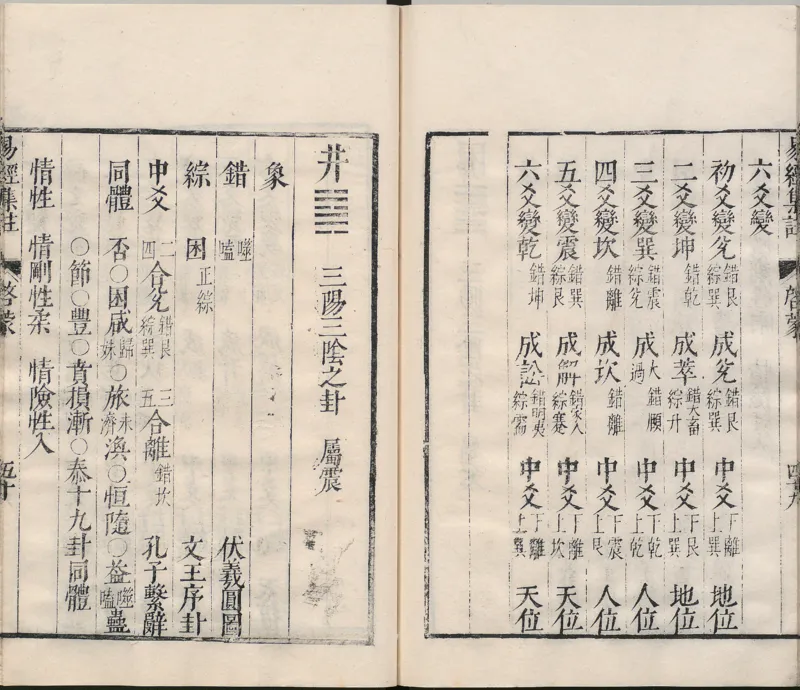 易經集註 啓蒙 四十九
六爻變
初爻變兌 錯艮綜巽 成兌 錯艮綜巽 中爻 下離上巽 地位
二爻變坤 錯乾 成萃 錯大畜綜升 中爻 下艮上巽 地位
三爻變巽 錯震綜兌 成大過 錯頤 中爻 下乾上乾 人位
四爻變坎 錯離 成坎 錯離 中爻 下震上艮 人位
五爻變震 錯巽綜艮 成解 錯家人綜蹇 中爻 下離上坎 天位
六爻變乾 錯坤 成訟 錯明夷綜需 中爻 下離上巽 天位
井 三陽三陰之卦 屬震
象
錯 噬嗑 伏羲圓圖
綜 困 正綜 文王序卦
中爻 二四合兌 錯艮綜巽 三五合離 錯坎 孔子繫辭
同體 否○困咸歸妹○旅未濟渙○恒隨○益噬嗑蠱
○節○豐○賁損漸○泰十九卦同體
情性 情剛性柔 情險性入
易經集註 啓蒙 五十